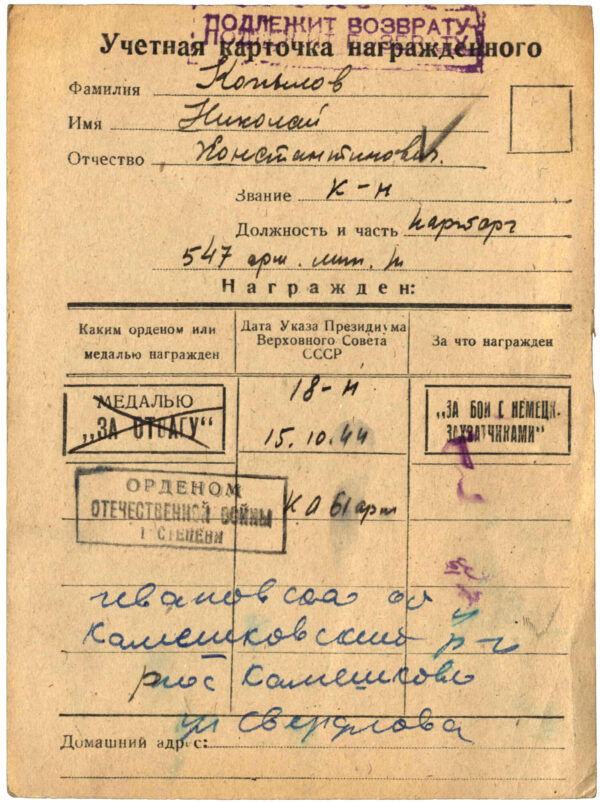 ПОДЛЕЖИТ ВОЗВРАТУ
Учетная карточка награжденного
Фамилия Копылов
Имя Николай
Отчество Константинович.
Звание к-н
Должность и часть парторг
547 арт. мин. п
Награжден:
Каким орденом или медалью награжден
Дата Указа Президиума Верховного Совета СССР
За что награжден
МЕДАЛЬЮ „ЗА ОТВАГУ“
18-н
15.10.44
„ЗА БОИ С НЕМЕЦК. ЗАХВАТЧИКАМИ“
ОРДЕНОМ
ОТЕЧЕСТВЕННОЙ ВОЙНЫ
I СТЕПЕНИ
КА 61 арм
Ивановская об
Камешковский р-н
пос Камешково
ул Свердлова
Домашний адрес: